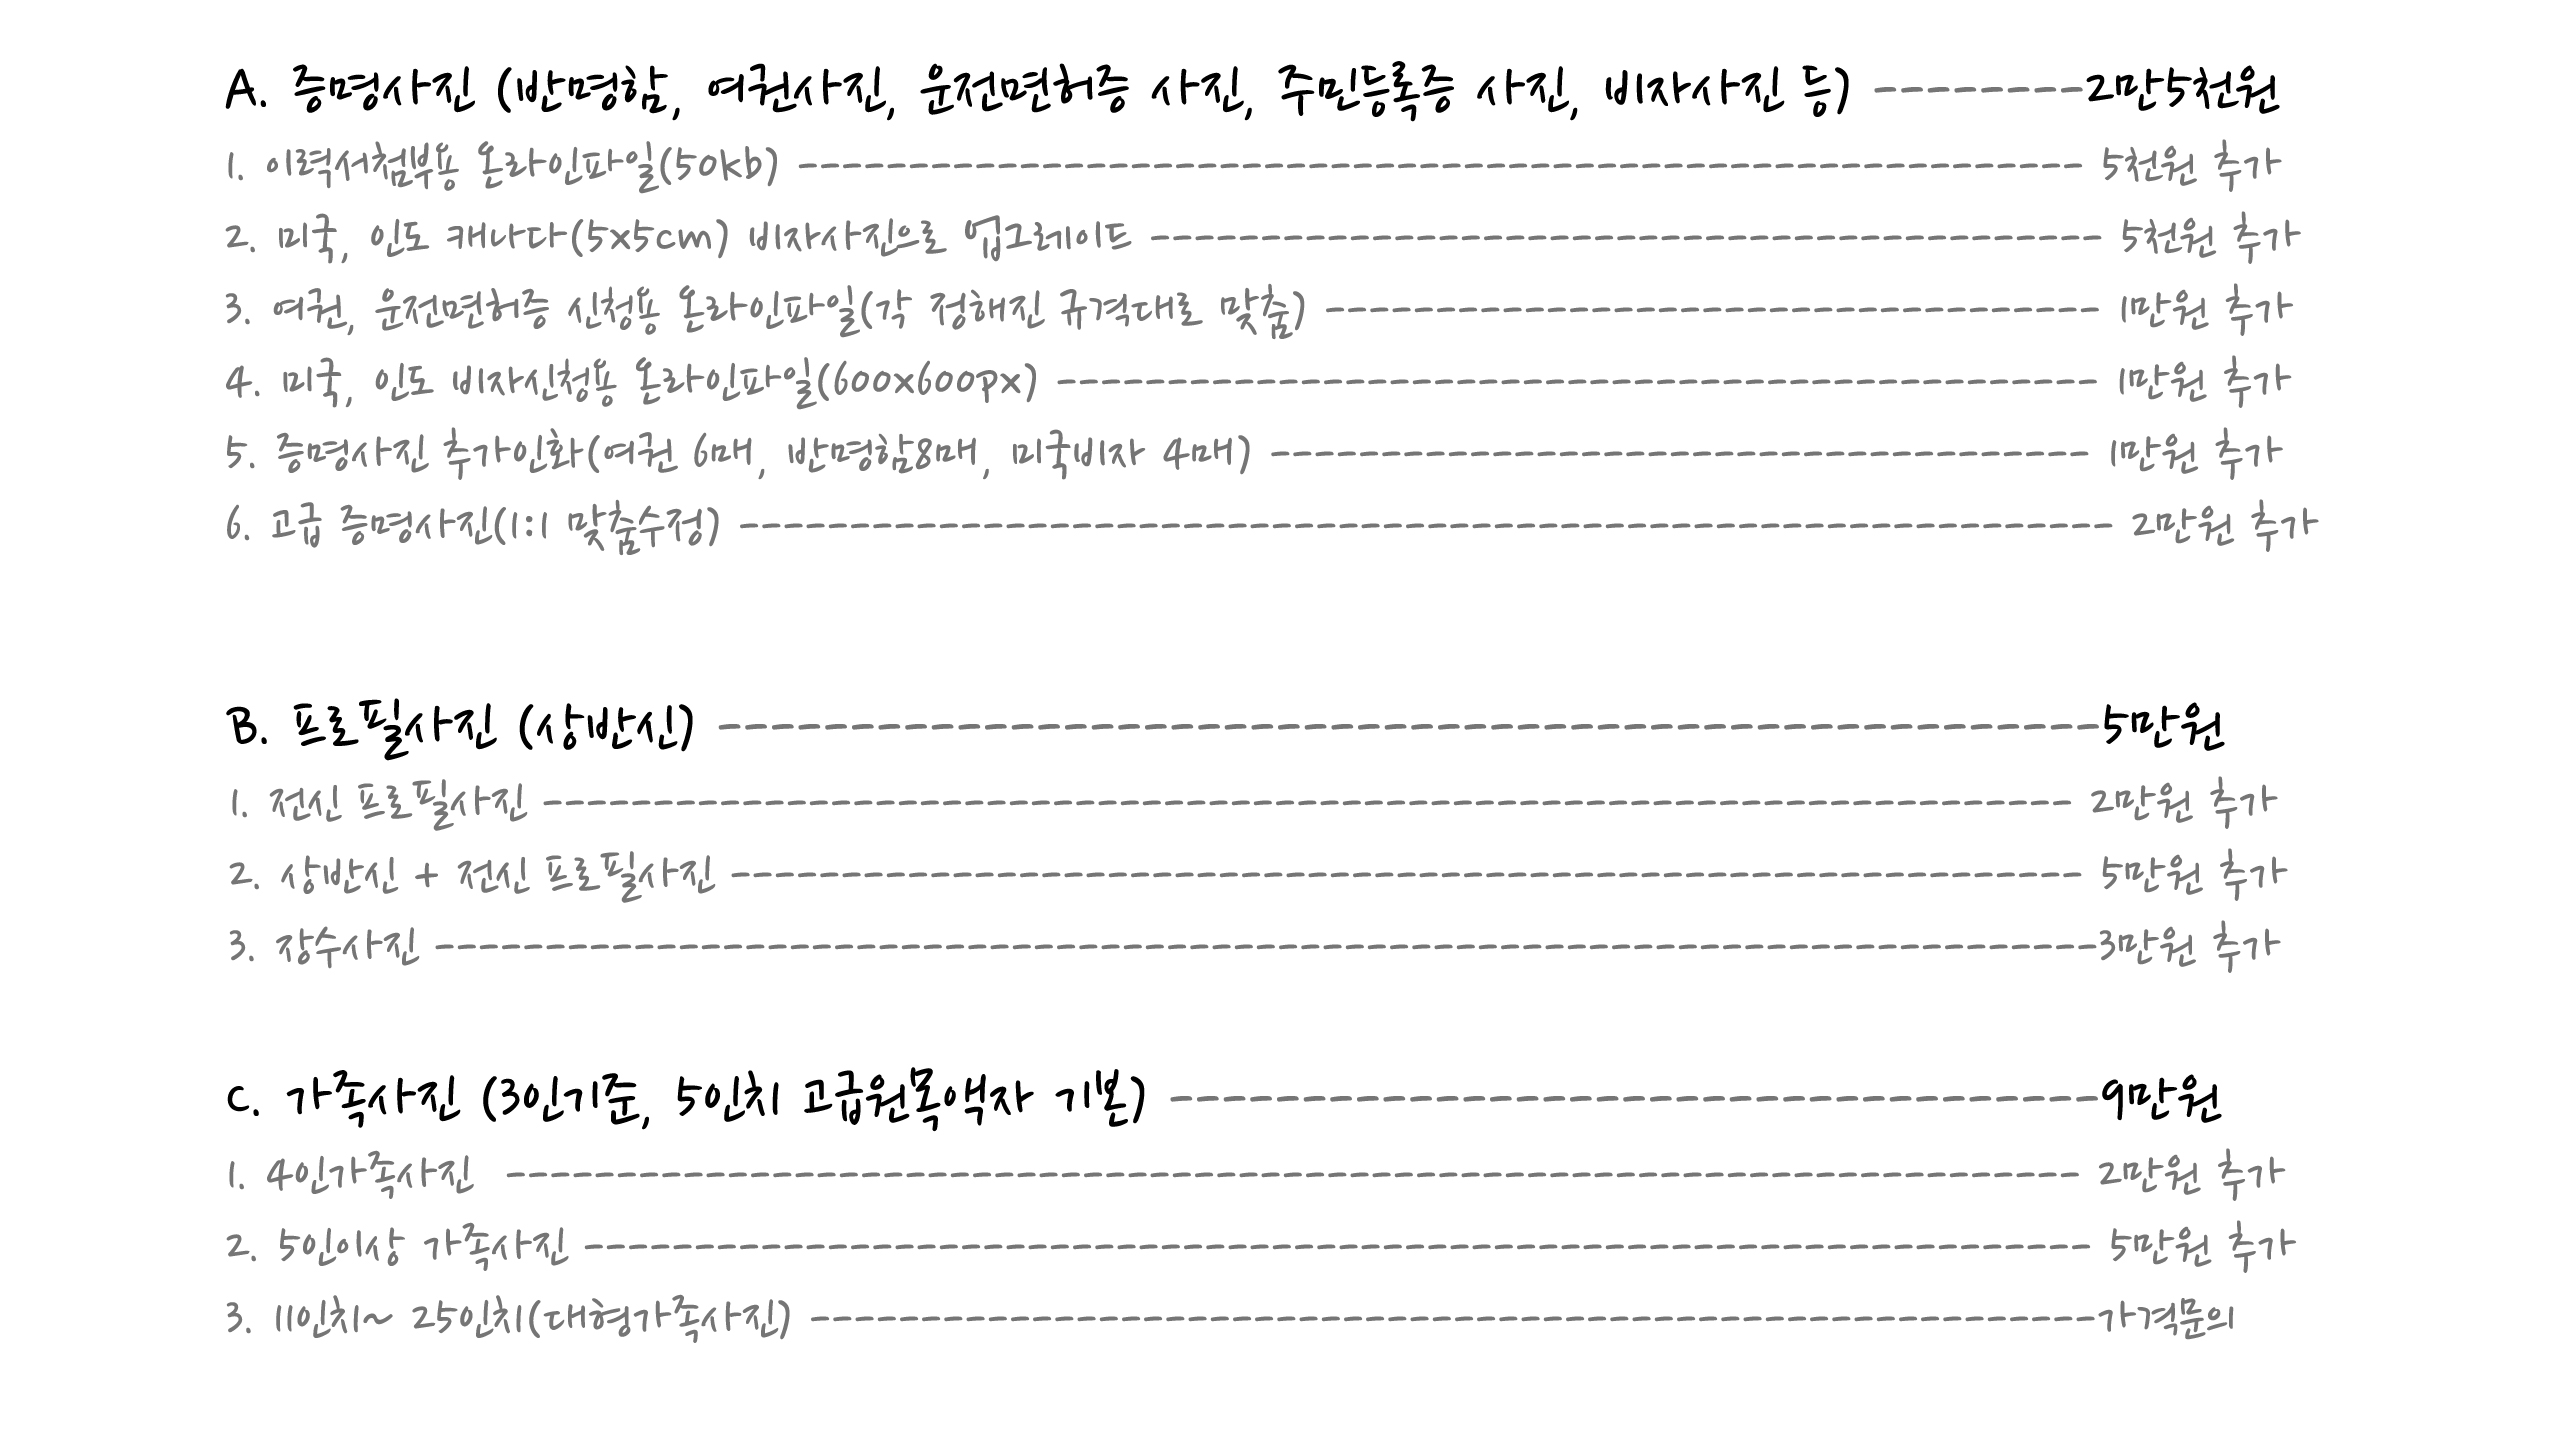 A. 증명사진 (반명함, 여권사진, 운전면허증 사진, 주민등록증 사진, 비자사진 등) --------2만5천원
1. 이력서첨부용 온라인파일(50kb) ---------------------------------------------------------- 5천원 추가
2. 미국, 인도 캐나다(5x5cm) 비자사진으로 업그레이드 ------------------------------------------- 5천원 추가
3. 여권, 운전면허증 신청용 온라인파일(각 정해진 규격대로 맞춤) ----------------------------------- 1만원 추가
4. 미국, 인도 비자신청용 온라인파일(600x600px) ----------------------------------------------- 1만원 추가
5. 증명사진 추가인화(여권 6매, 반명함8매, 미국비자 4매) ------------------------------------- 1만원 추가
6. 고급 증명사진(1:1 맞춤수정) -------------------------------------------------------------- 2만원 추가
B. 프로필사진 (상반신) ----------------------------------------------------5만원
1. 전신 프로필사진 --------------------------------------------------------------------- 2만원 추가
2. 상반신 + 전신 프로필사진 ------------------------------------------------------------- 5만원 추가
3. 장수사진 ---------------------------------------------------------------------------3만원 추가
C. 가족사진 (3인기준, 5인치 고급원목액자 기본) -----------------------------------9만원
1. 4인가족사진 ----------------------------------------------------------------------- 2만원 추가
2. 5인이상 가족사진 -------------------------------------------------------------------- 5만원 추가
3. 11인치~ 25인치(대형가족사진) ----------------------------------------------------------가격문의